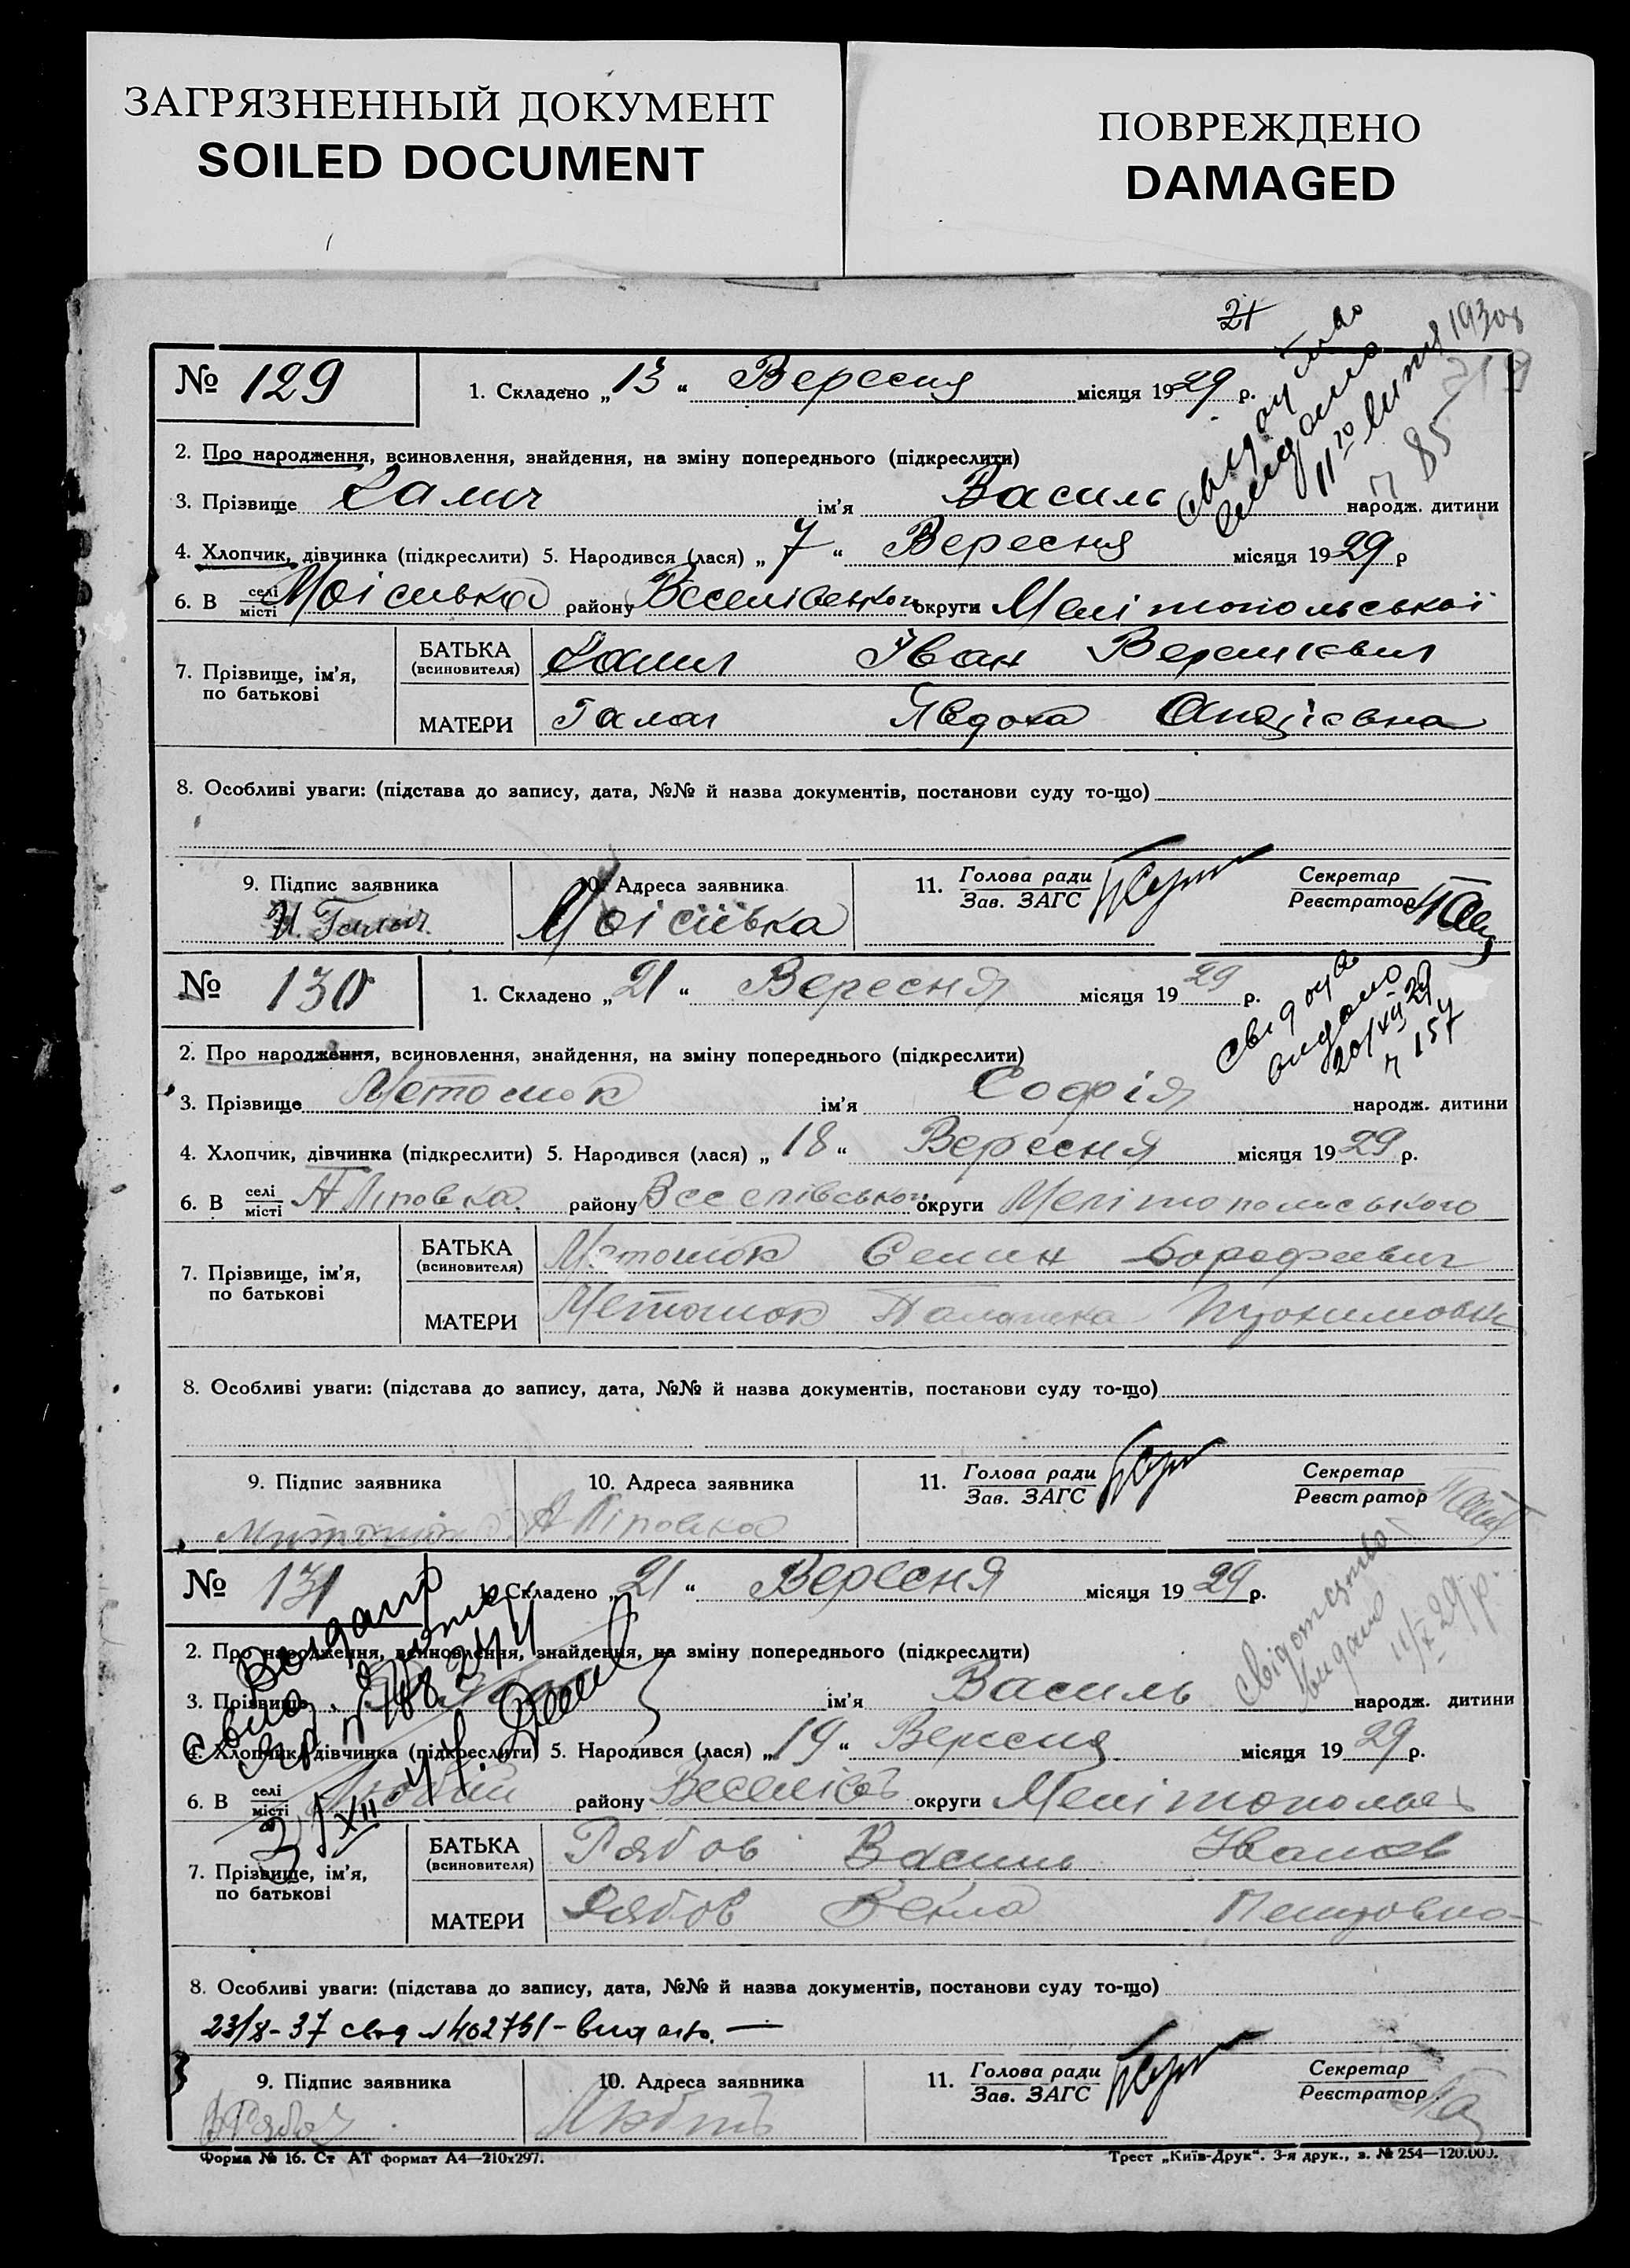 ЗАГРЯЗНЕННЫЙ ДОКУМЕНТ
SOILED DOCUMENT
ПОВРЕЖДЕНО
DAMAGED
21
№ 129
1. Складено „ 13 “ Вересня місяця 1929 р.
видано
11 липня 1930 р
ч 85
2. Про народження, всиновлення, знайдення, на зміну попереднього (підкреслити)
3. Прізвище Галич ім'я Василь народж. дитини
4. Хлопчик, дівчинка (підкреслити) 5. Народився (лася) „ 7 “ Вересня місяця 1929 р
6. В селі місті Моісиївка району Веселівського округи Мелітопольської
7. Прізвище, ім'я, по батькові
БАТЬКА (всиновителя) Галич Іван
МАТЕРИ Галич Явдоха Андрієвна
8. Особливі уваги: (підстава до запису, дата, №№ й назва документів, постанови суду то-що)
9. Підпис заявника И. Галич
10. Адреса заявника Моісиївка
11. Голова ради Зав. ЗАГС
Секретар Реєстратор
№ 130
1. Складено „ 21 “ Вересня місяця 1929 р.
видано
20/XII 29
ч 157
2. Про народження, всиновлення, знайдення, на зміну попереднього (підкреслити)
3. Прізвище ім'я Софія народж. дитини
4. Хлопчик, дівчинка (підкреслити) 5. Народився (лася) „ 18 “ Вересня місяця 1929 р.
6. В селі місті Ліповка району Веселівського округи Мелітопольського
7. Прізвище, ім'я, по батькові
БАТЬКА (всиновителя) Семин Дорофеевич
МАТЕРИ Палашка
8. Особливі уваги: (підстава до запису, дата, №№ й назва документів, постанови суду то-що)
9. Підпис заявника
10. Адреса заявника Ліповка
11. Голова ради Зав. ЗАГС
Секретар Реєстратор
№ 131
1. Складено „ 21 “ Вересня місяця 1929 р.
Видано
Свідотцтво
видано 11/X 29 р.
2. Про народження, всиновлення, знайдення, на зміну попереднього (підкреслити)
3. Прізвище ім'я Василь народж. дитини
4. Хлопчик, дівчинка (підкреслити) 5. Народився (лася) „ 19 “ Вересня місяця 1929 р.
6. В селі місті району Веселівсь округи Мелітопольсь
7. Прізвище, ім'я, по батькові
БАТЬКА (всиновителя) Рябов Василь Іванов
МАТЕРИ Рябов Векла Петровна
8. Особливі уваги: (підстава до запису, дата, №№ й назва документів, постанови суду то-що)
23/X-37 свід №402751 - видано. —
9. Підпис заявника В Рябов
10. Адреса заявника
11. Голова ради Зав. ЗАГС
Секретар Реєстратор
Форма № 16. Ст АТ формат А4—210х297.
Трест „Київ-Друк“. 3-я друк., з. № 254—120.000.